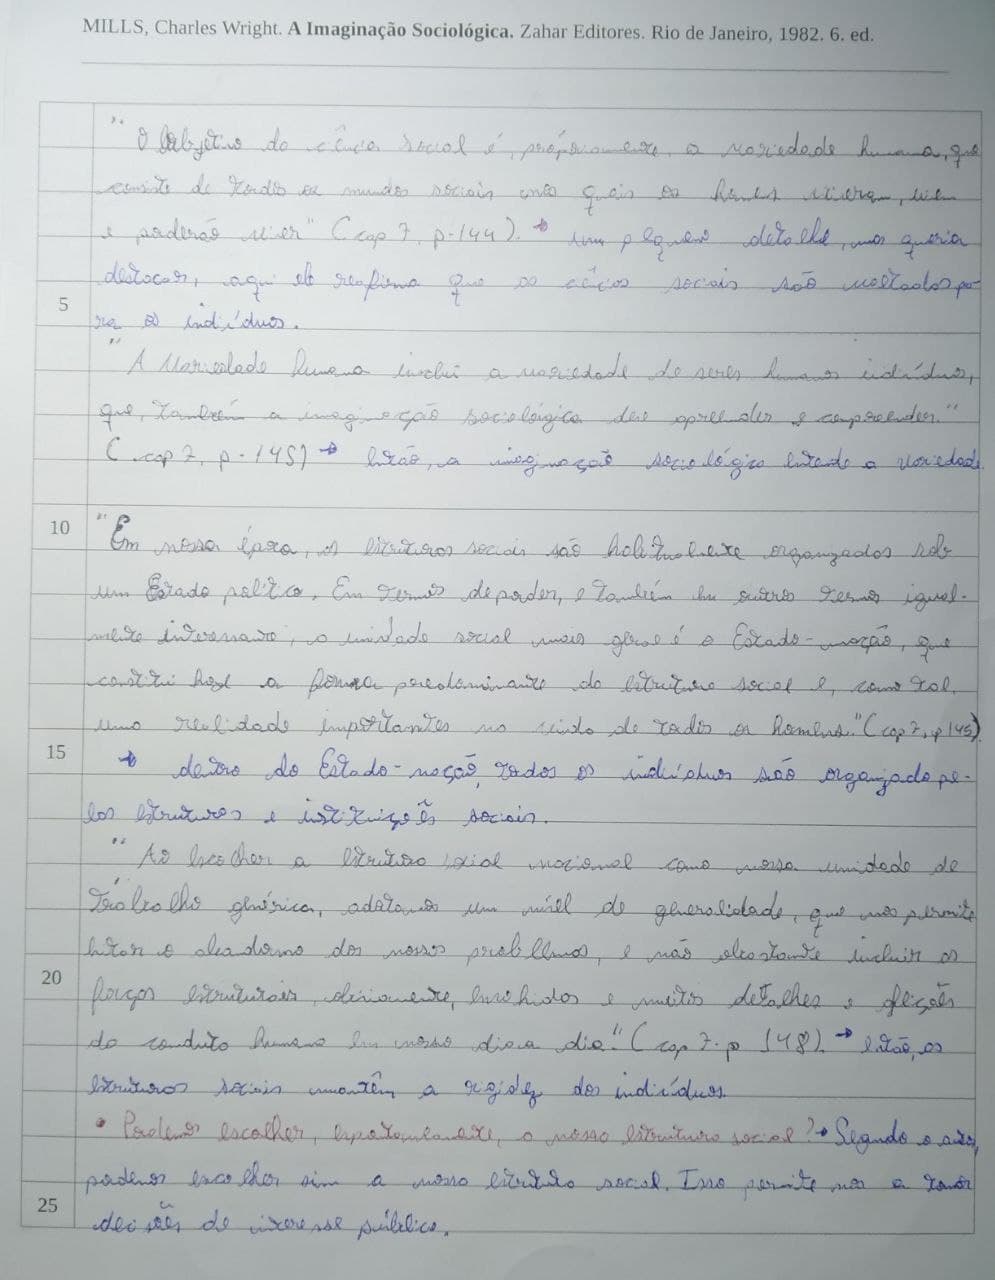 MILLS, Charles Wright. A Imaginação Sociológica. Zahar Editores. Rio de Janeiro, 1982. 6. ed.
"O objetivo da ciência social é, propriamente, a variedade humana, que
consiste de todos os mundos sociais nos quais os homens viveram, vivem
e poderão viver" (cap 7, p. 144). → um pequeno detalhe, mas queria
destacar, aqui ele reafirma que as ciências sociais são voltados pa-
5
ra os indivíduos.
"A Variedade humana inclui a variedade de seres humanos indivíduos,
que, também a imaginação sociológica deve apreender e compreender."
(cap 7, p. 145) → Então, a imaginação sociológica entende a variedade
10
"Em nossa época, as estruturas sociais são habitualmente organizados sob
um Estado político. Em termos de poder, e também em outros termos igual-
mente interessante, a unidade social mais geral é o Estado-nação, que
constitui hoje a forma predominante da estrutura social e, como tal,
uma realidade importantes na vida de todos os homens." (cap 7, p 145)
15
→ dentro do Estado-nação, todos os indivíduos são organizado pe-
las estruturas e instituições sociais.
"Ao escolher a estrutura social nacional como nossa unidade de
trabalho genérica, adotamos um nível de generalidade, que nos permite
evitar o abandono dos nossos problemas, e não obstante incluir as
20
forças estruturais, obviamente, envolvidos e muitos detalhes e aflições
da conduta humana em nosso dia a dia." (cap 7. p 148). → então, as
estruturas sociais mantêm a rigidez dos indivíduos.
• Podemos escolher, espontaneamente, a nossa estrutura social? → Segundo o autor,
podemos escolher sim a nossa estrutura social. Isso permite nos a tomar
25
decisões de interesse público.